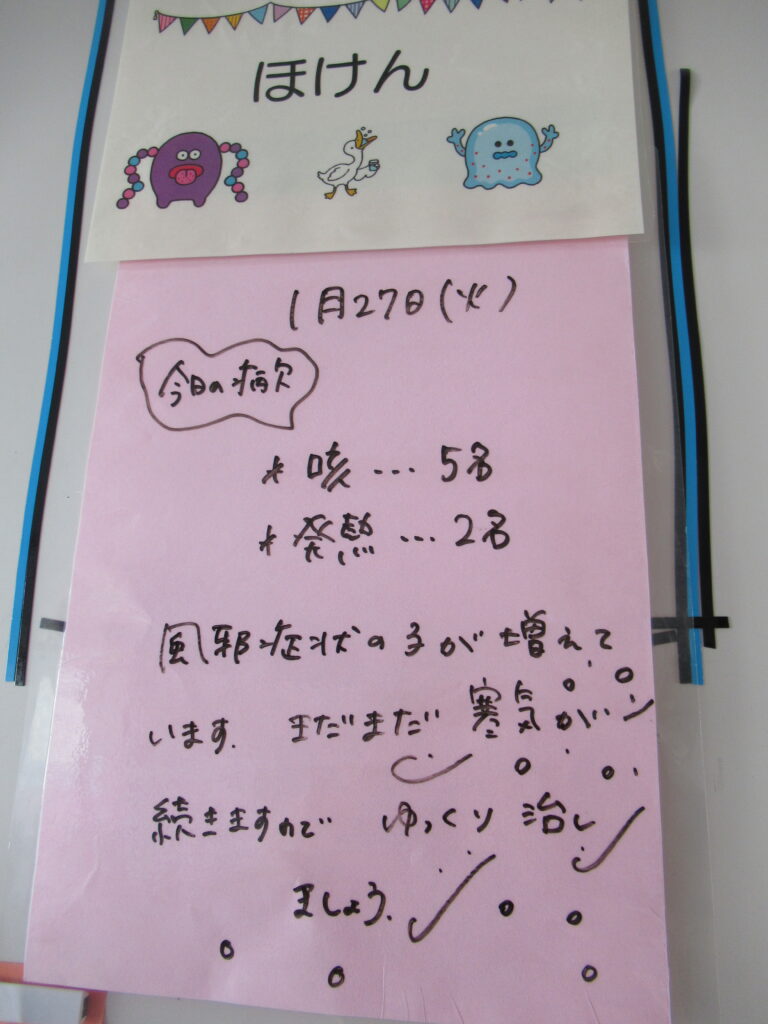 ほけん
1月27日(火)
今日の病欠
* 咳 … 5名
* 発熱 … 2名
風邪症状の子が増えて
います. まだまだ 寒気が
続きますので ゆっくり 治し
ましょう.